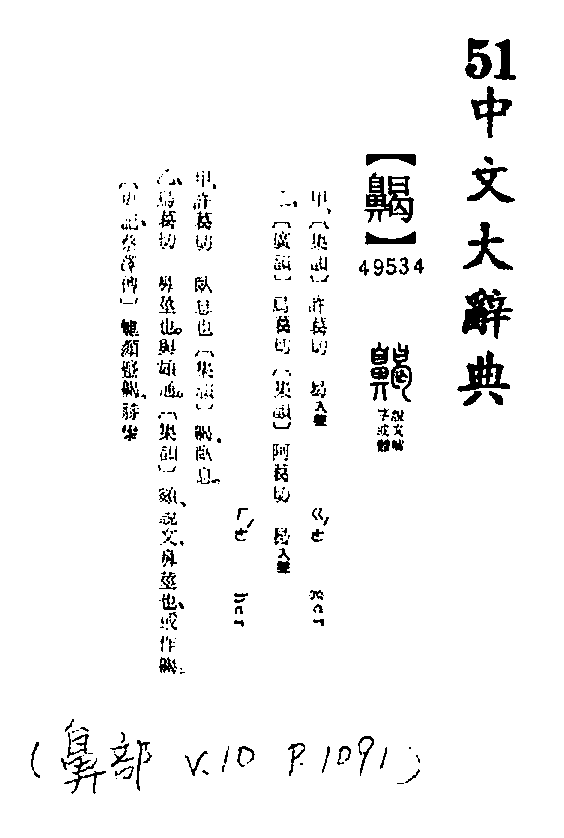 51中文大辭典
【齃】
49534
說文頞
字或體
甲、〔集韻〕許葛切 曷入聲 ㄍㄜˊ ger
乙、〔廣韻〕烏葛切〔集韻〕阿葛切 曷入聲
ㄏㄜˊ her
甲、許葛切 臥息也〔集韻〕齃、臥息。
乙、烏葛切 鼻莖也。與頞通。〔集韻〕頞、說文、鼻莖也、或作齃。
〔史記蔡澤傳〕魋顏蹙齃、膝攣
(鼻部 V.10 P.1091)